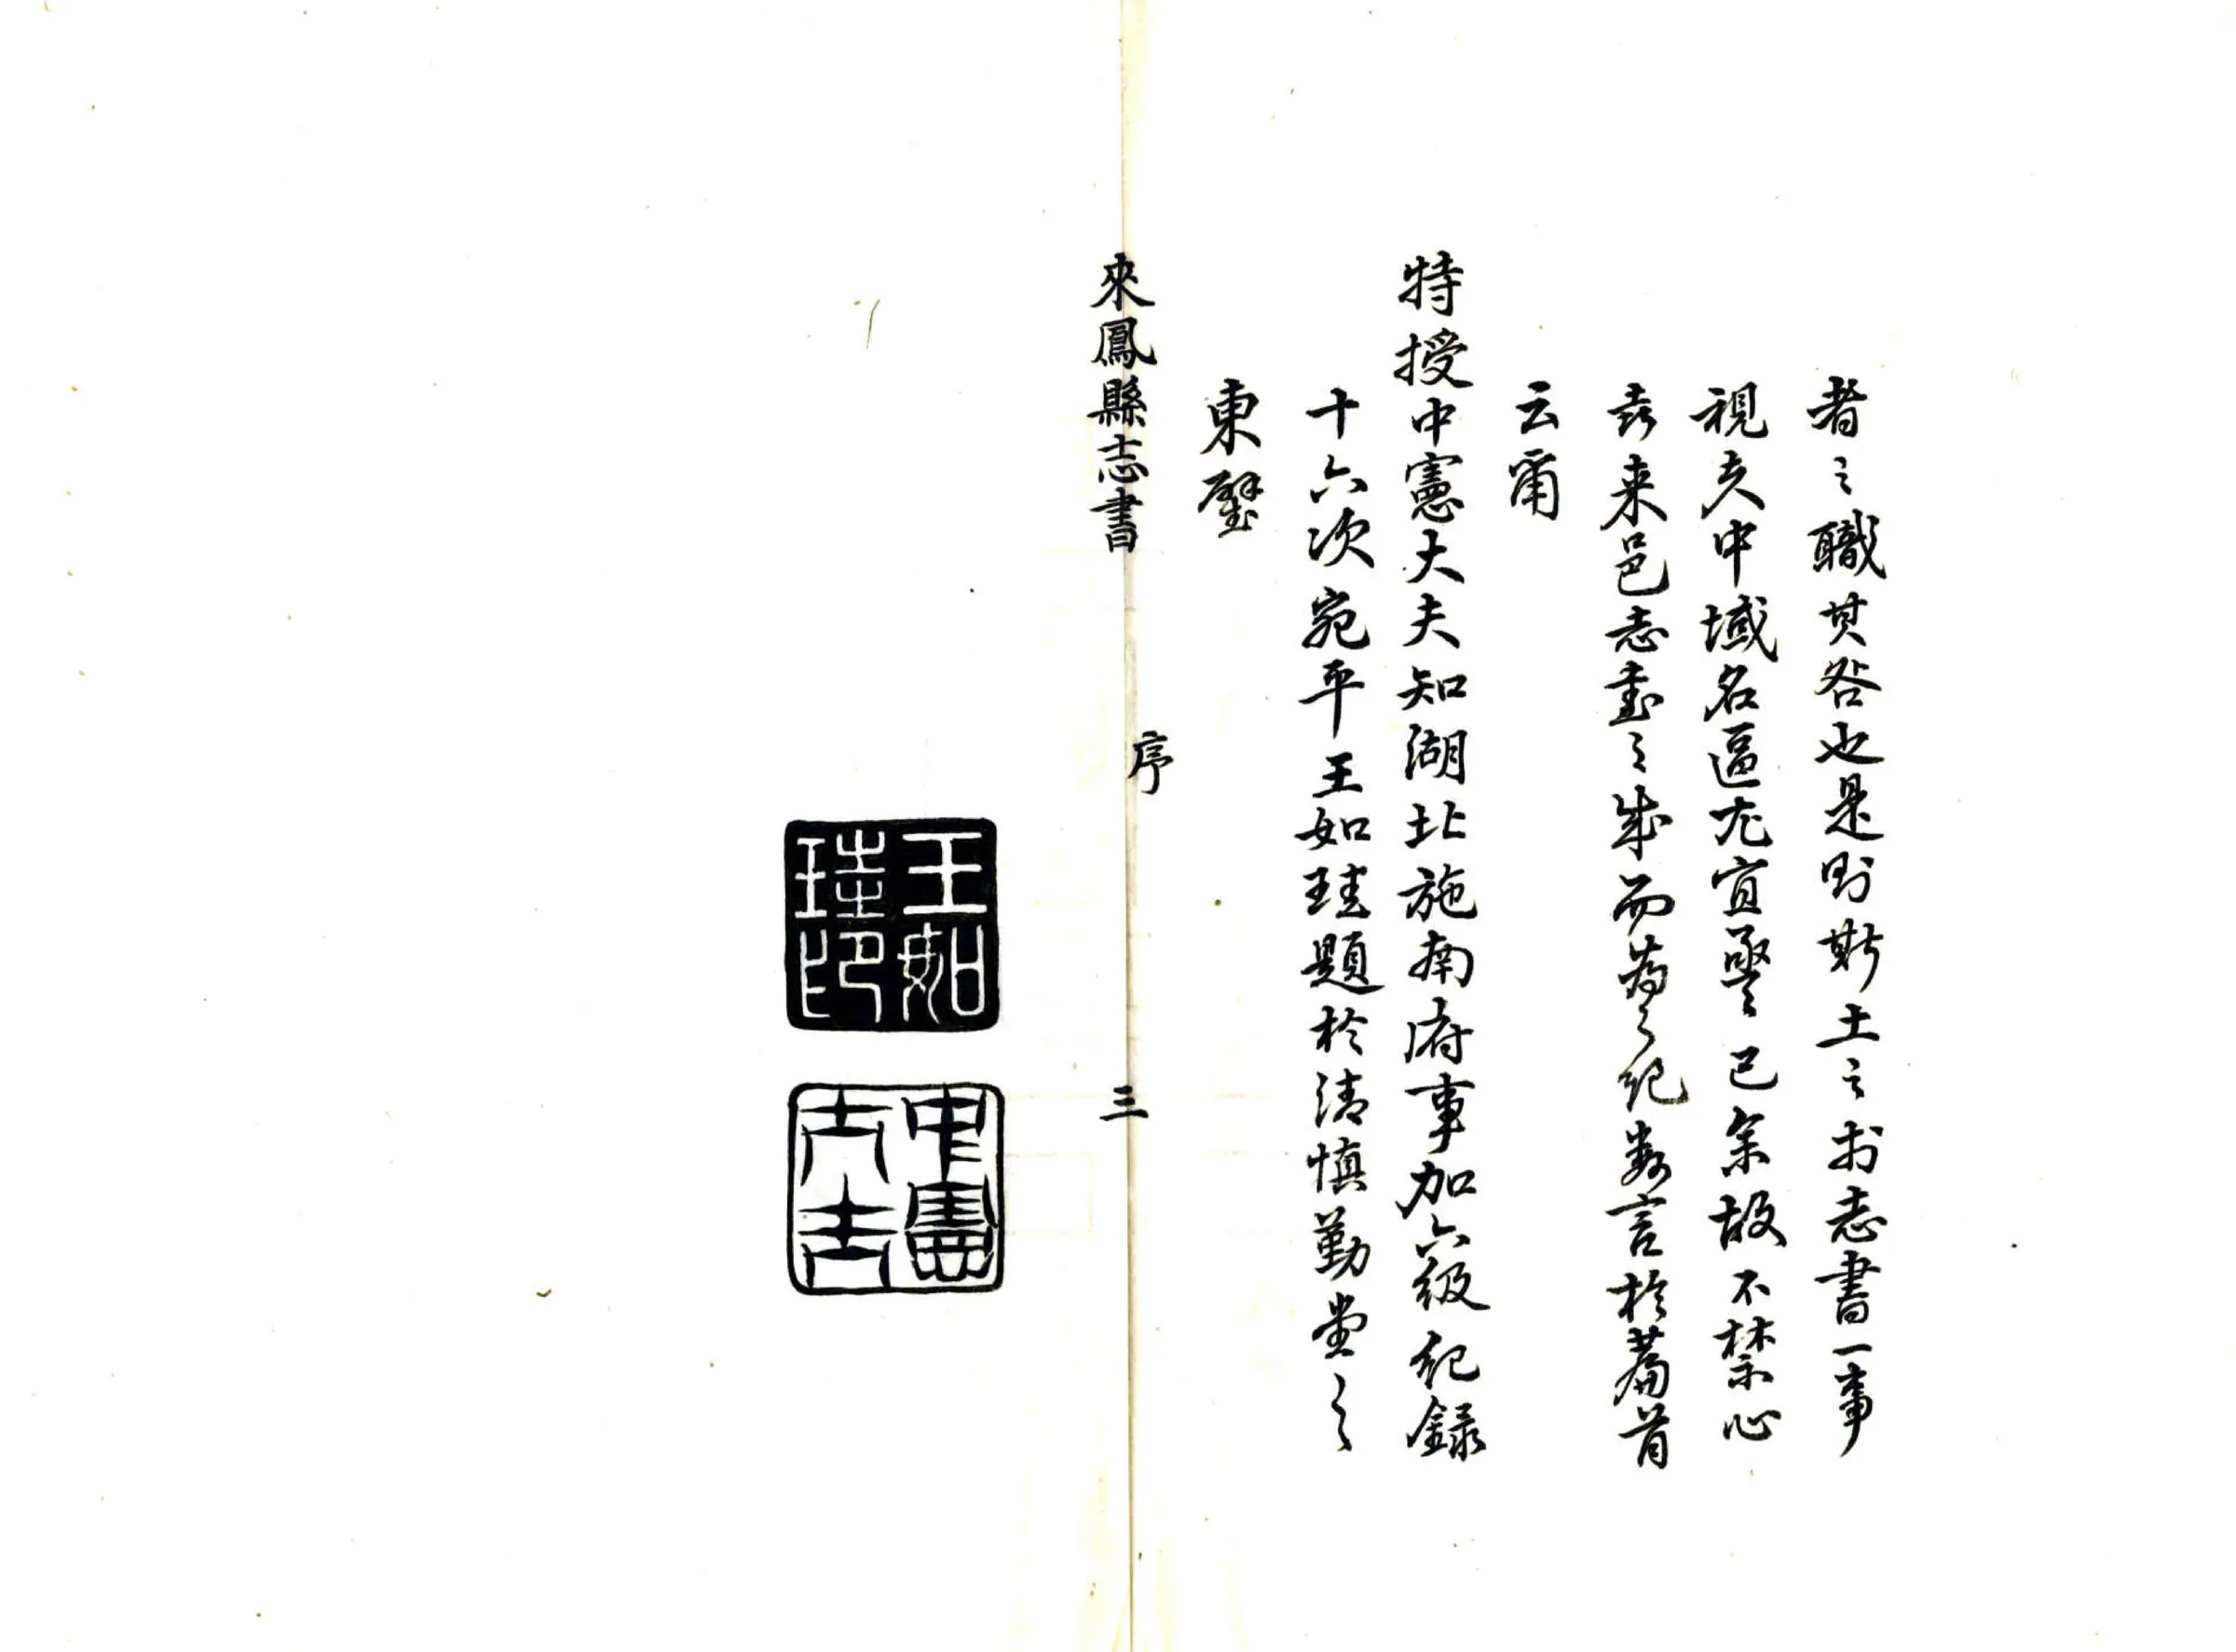 者之職其咎也是則斯土之於志書一事
視夫中域名區尤宜亟亟已余故不禁心
喜来邑志書之成而為之紀數言於篇首
云爾
特授中憲大夫知湖北施南府事加六級紀錄
十六次宛平王如珪題於清慎勤堂之
東壁
來鳳縣志書
序
三
王如珪印
中憲大夫